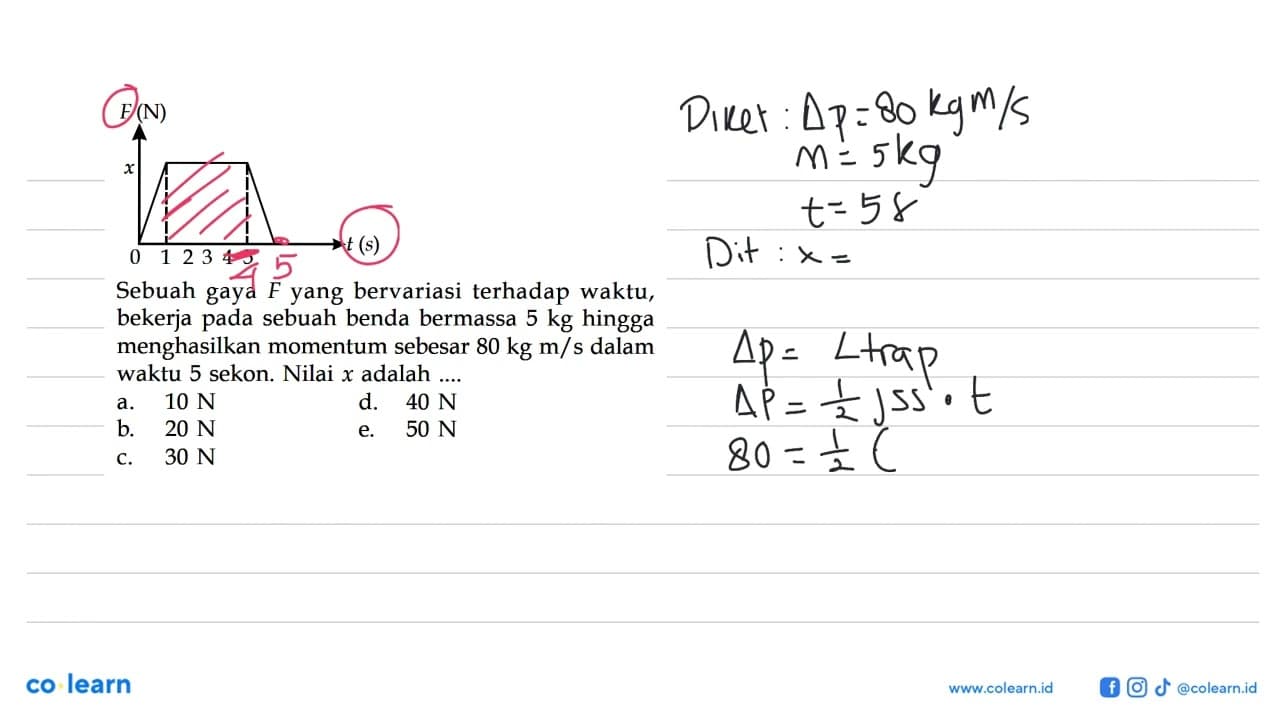 F (N)
x
t (s)
0 1 2 3 4 5
4 5
Sebuah gaya F yang bervariasi terhadap waktu,
bekerja pada sebuah benda bermassa 5 kg hingga
menghasilkan momentum sebesar 80 kg m/s dalam
waktu 5 sekon. Nilai x adalah ....
a. 10 N d. 40 N
b. 20 N e. 50 N
c. 30 N
Diket : Δp = 80 kg m/s
m = 5 kg
t = 5 s
Dit : x =
Δp = L trap
Δp = 1/2 jss · t
80 = 1/2 (
co learn
www.colearn.id @colearn.id